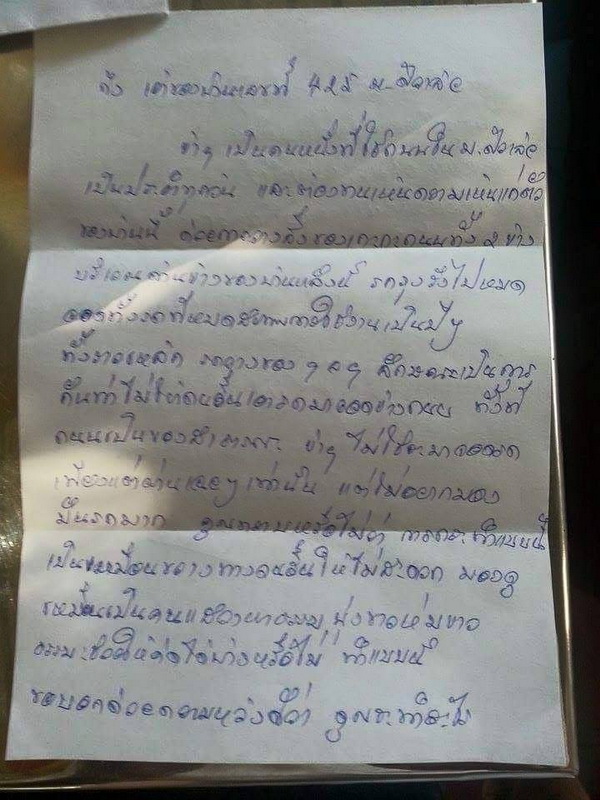 ถึง เจ้าของบ้านเลขที่ 425 ม.
ข้าฯ เป็นคนหนึ่งที่ใช้ถนนใน ม.
เป็นประจำทุกวัน และต้องทนเห็นความเห็นแก่ตัว
ของบ้านนี้ ด้วยการวางสิ่งของเกะกะถนนทั้ง 2 ข้าง
บริเวณด้านข้างของบ้านหลังนี้ รกรุงรังไปหมด
จอดทิ้งรถที่หมดสภาพการใช้งานเป็นปีๆ
ทั้งราวเหล็ก รถวางของ ๆ ลๆ ลักษณะเป็นการ
กันท่าไม่ให้คนอื่นเอารถมาจอดข้างถนน ทั้งที่
ถนนเป็นของสาธารณะ ข้าฯ ไม่ใช่จะมาจอดรถ
เพียงแต่ผ่านเฉยๆ เท่านั้น แต่ไม่อยากมอง
มันรกมาก คุณทราบหรือไม่ว่า การกระทำแบบนี้
เป็นเหมือนขวางทางคนอื่นให้ไม่สะดวก มองดู
เหมือนเป็นคนแสวงหาธรรม นุ่งขาวห่มขาว
ธรรมะช่วยให้คิดได้บ้างหรือไม่ ทำแบบนี้
ขอบอกด้วยความหวังดีว่า คุณจะทำอะไร